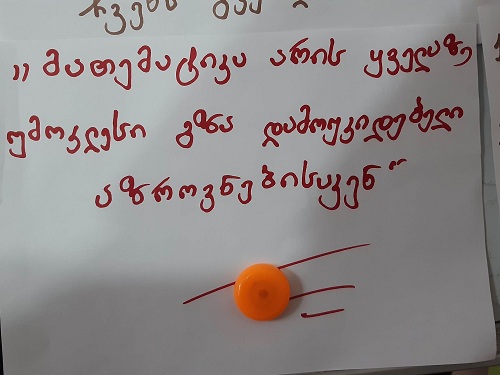 ჩვენი
„მათემატიკა არის ყველაზე
უმოკლესი გზა დამოუკიდებელი
აზროვნებისაკენ“